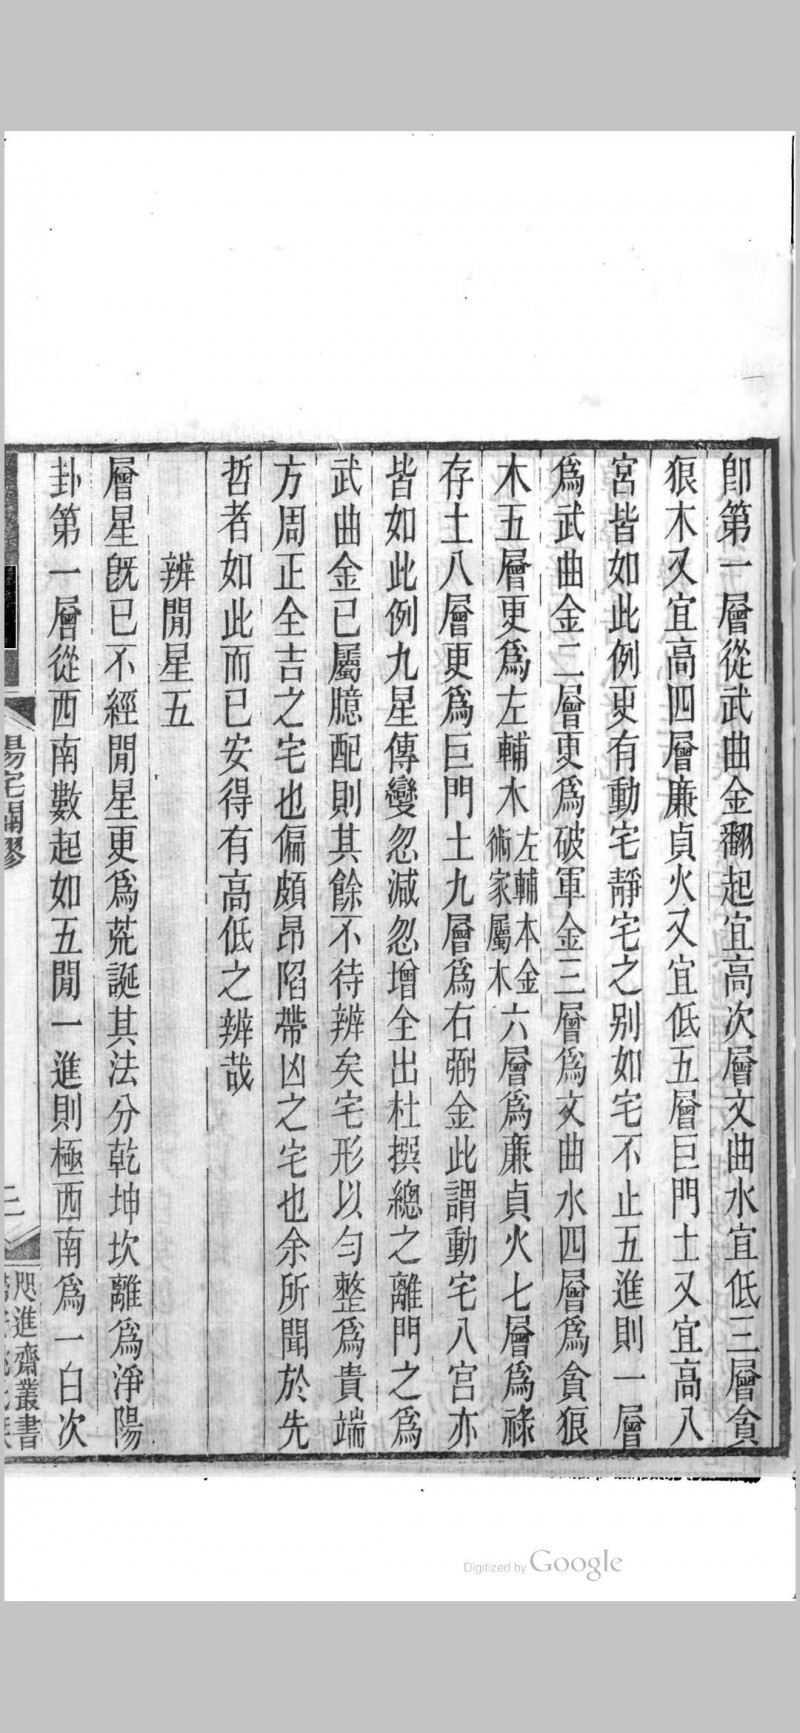 卽第一層從武曲金翻起宜高次層文曲水宜低三層貪
狼木又宜高四層廉貞火又宜低五層巨門土又宜高八
宮皆如此例更有動宅靜宅之别如宅不止五進則一層
爲武曲金二層更爲破軍金三層爲文曲水四層爲貪狼
木五層更爲左輔木左輔本金術家屬木六層爲廉貞火七層爲祿
存土八層更爲巨門土九層爲右弼金此謂動宅八宮亦
皆如此例九星傳變忽減忽增全出杜撰總之離門之爲
武曲金已屬臆配則其餘不待辨矣宅形以勻整爲貴端
方周正全吉之宅也偏頗昂陷帶凶之宅也余所聞於先
哲者如此而已安得有高低之辨哉
辨間星五
層星旣已不經間星更爲荒誕其法分乾坤坎離爲淨陽
卦第一層從西南數起如五間一進則極西南爲一白次
陽宅闢謬
二
咫進齋叢書
Digitized by Google